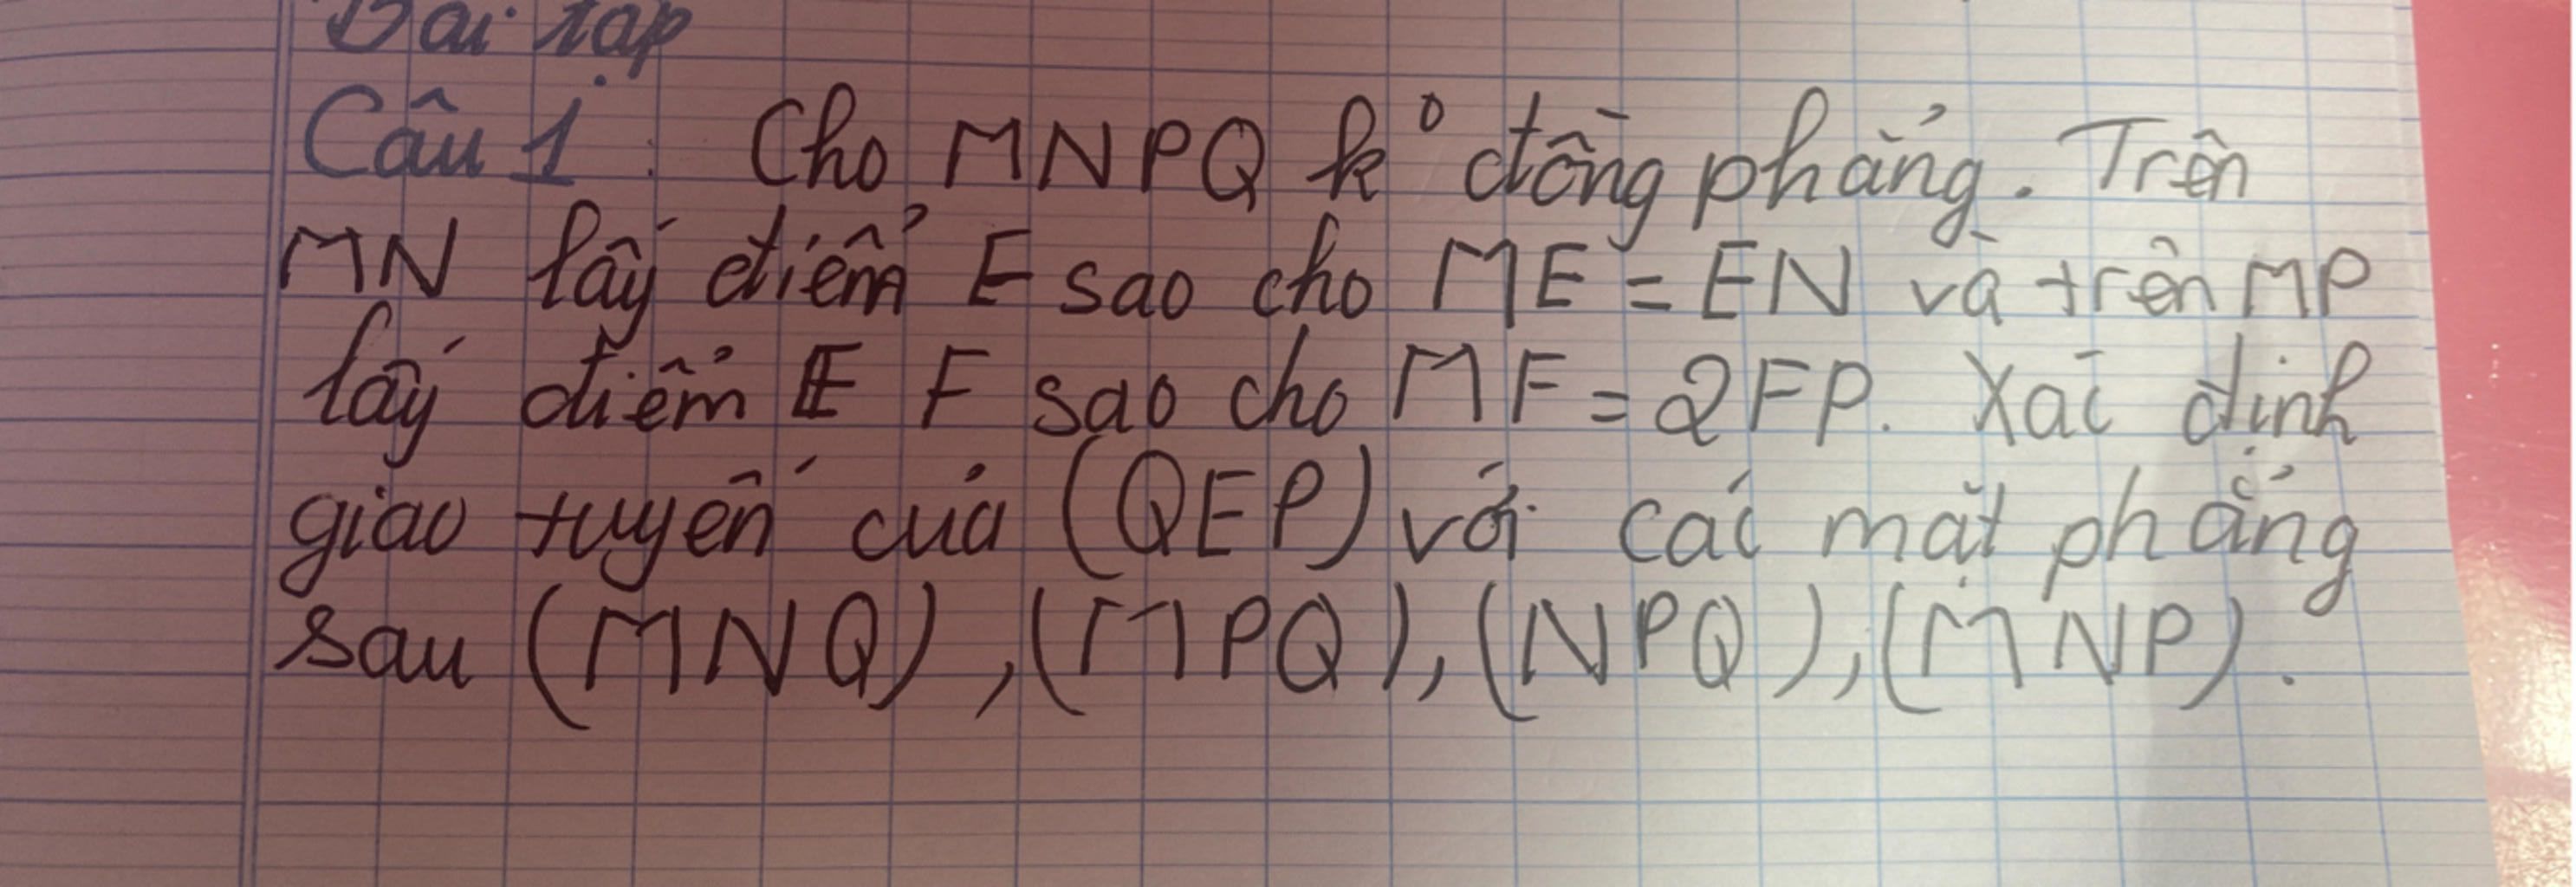 Bài tập
Câu 1: Cho MNPQ k° đồng phẳng. Trên
MN lấy điểm E sao cho ME = EN và trên MP
lấy điểm F sao cho MF = 2FP. Xác định
giao tuyến của (QEP) với các mặt phẳng
sau (MNQ), (MPQ), (NPQ), (MNP).